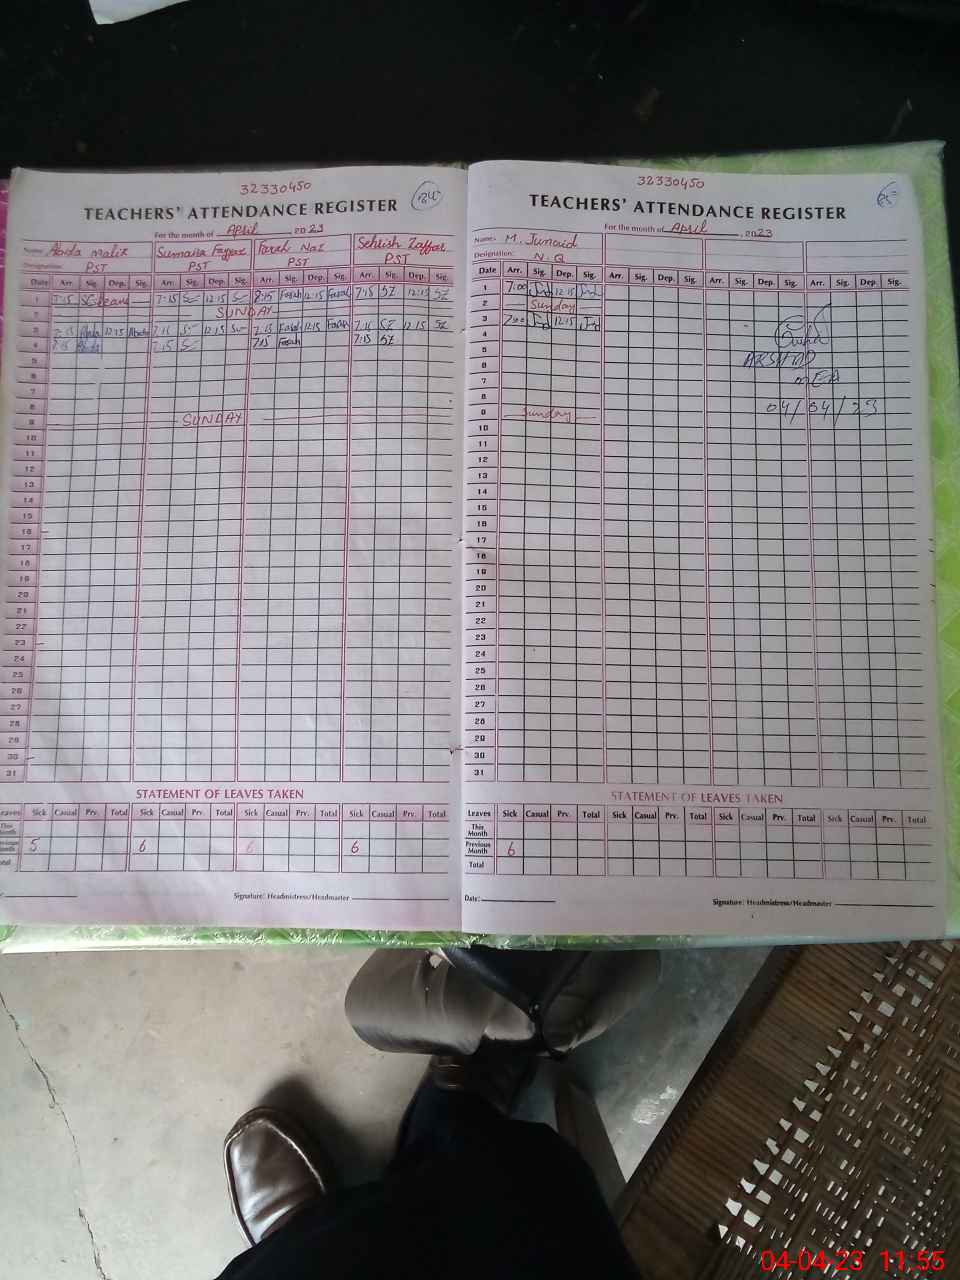 32330450
84
TEACHERS' ATTENDANCE REGISTER
For the month of April 2023
Name: Abida Malik Sumaira Fayyaz Farah Naz Sehrish Zaffar
Designation: PST PST PST PST
Date Arr. Sig. Dep. Sig. Arr. Sig. Dep. Sig. Arr. Sig. Dep. Sig. Arr. Sig. Dep. Sig.
1 7:15 7:15 12:15 7:15 Farah 12:15 Farah 7:15 SZ 12:15 SZ
2 SUNDAY
3 7:15 Abida 12:15 Abida 7:15 12:15 7:15 Farah 12:15 Farah 7:15 SZ 12:15 SZ
4 7:15 Abida 7:15 7:15 Farah 7:15 SZ
5
6
7
8
9 SUNDAY
10
11
12
13
14
15
16
17
18
19
20
21
22
23
24
25
26
27
28
29
30
31
STATEMENT OF LEAVES TAKEN
Leaves Sick Casual Prv. Total Sick Casual Prv. Total Sick Casual Prv. Total Sick Casual Prv. Total
This Month
Previous Month 5 6 6 6
Total
Signature: Headmistress/Headmaster
32330450
85
TEACHERS' ATTENDANCE REGISTER
For the month of April, 2023
Name: M. Junaid
Designation: N.Q
Date Arr. Sig. Dep. Sig. Arr. Sig. Dep. Sig. Arr. Sig. Dep. Sig. Arr. Sig. Dep. Sig.
1 7:00 12:15
2 Sunday
3 7:00 12:15
4
5 ARSHAD
6
7 MEA
8
9 Sunday 04/04/23
10
11
12
13
14
15
16
17
18
19
20
21
22
23
24
25
26
27
28
29
30
31
STATEMENT OF LEAVES TAKEN
Leaves Sick Casual Prv. Total Sick Casual Prv. Total Sick Casual Prv. Total Sick Casual Prv. Total
This Month
Previous Month 6
Total
Date:
Signature: Headmistress/Headmaster
04-04-23 11:55